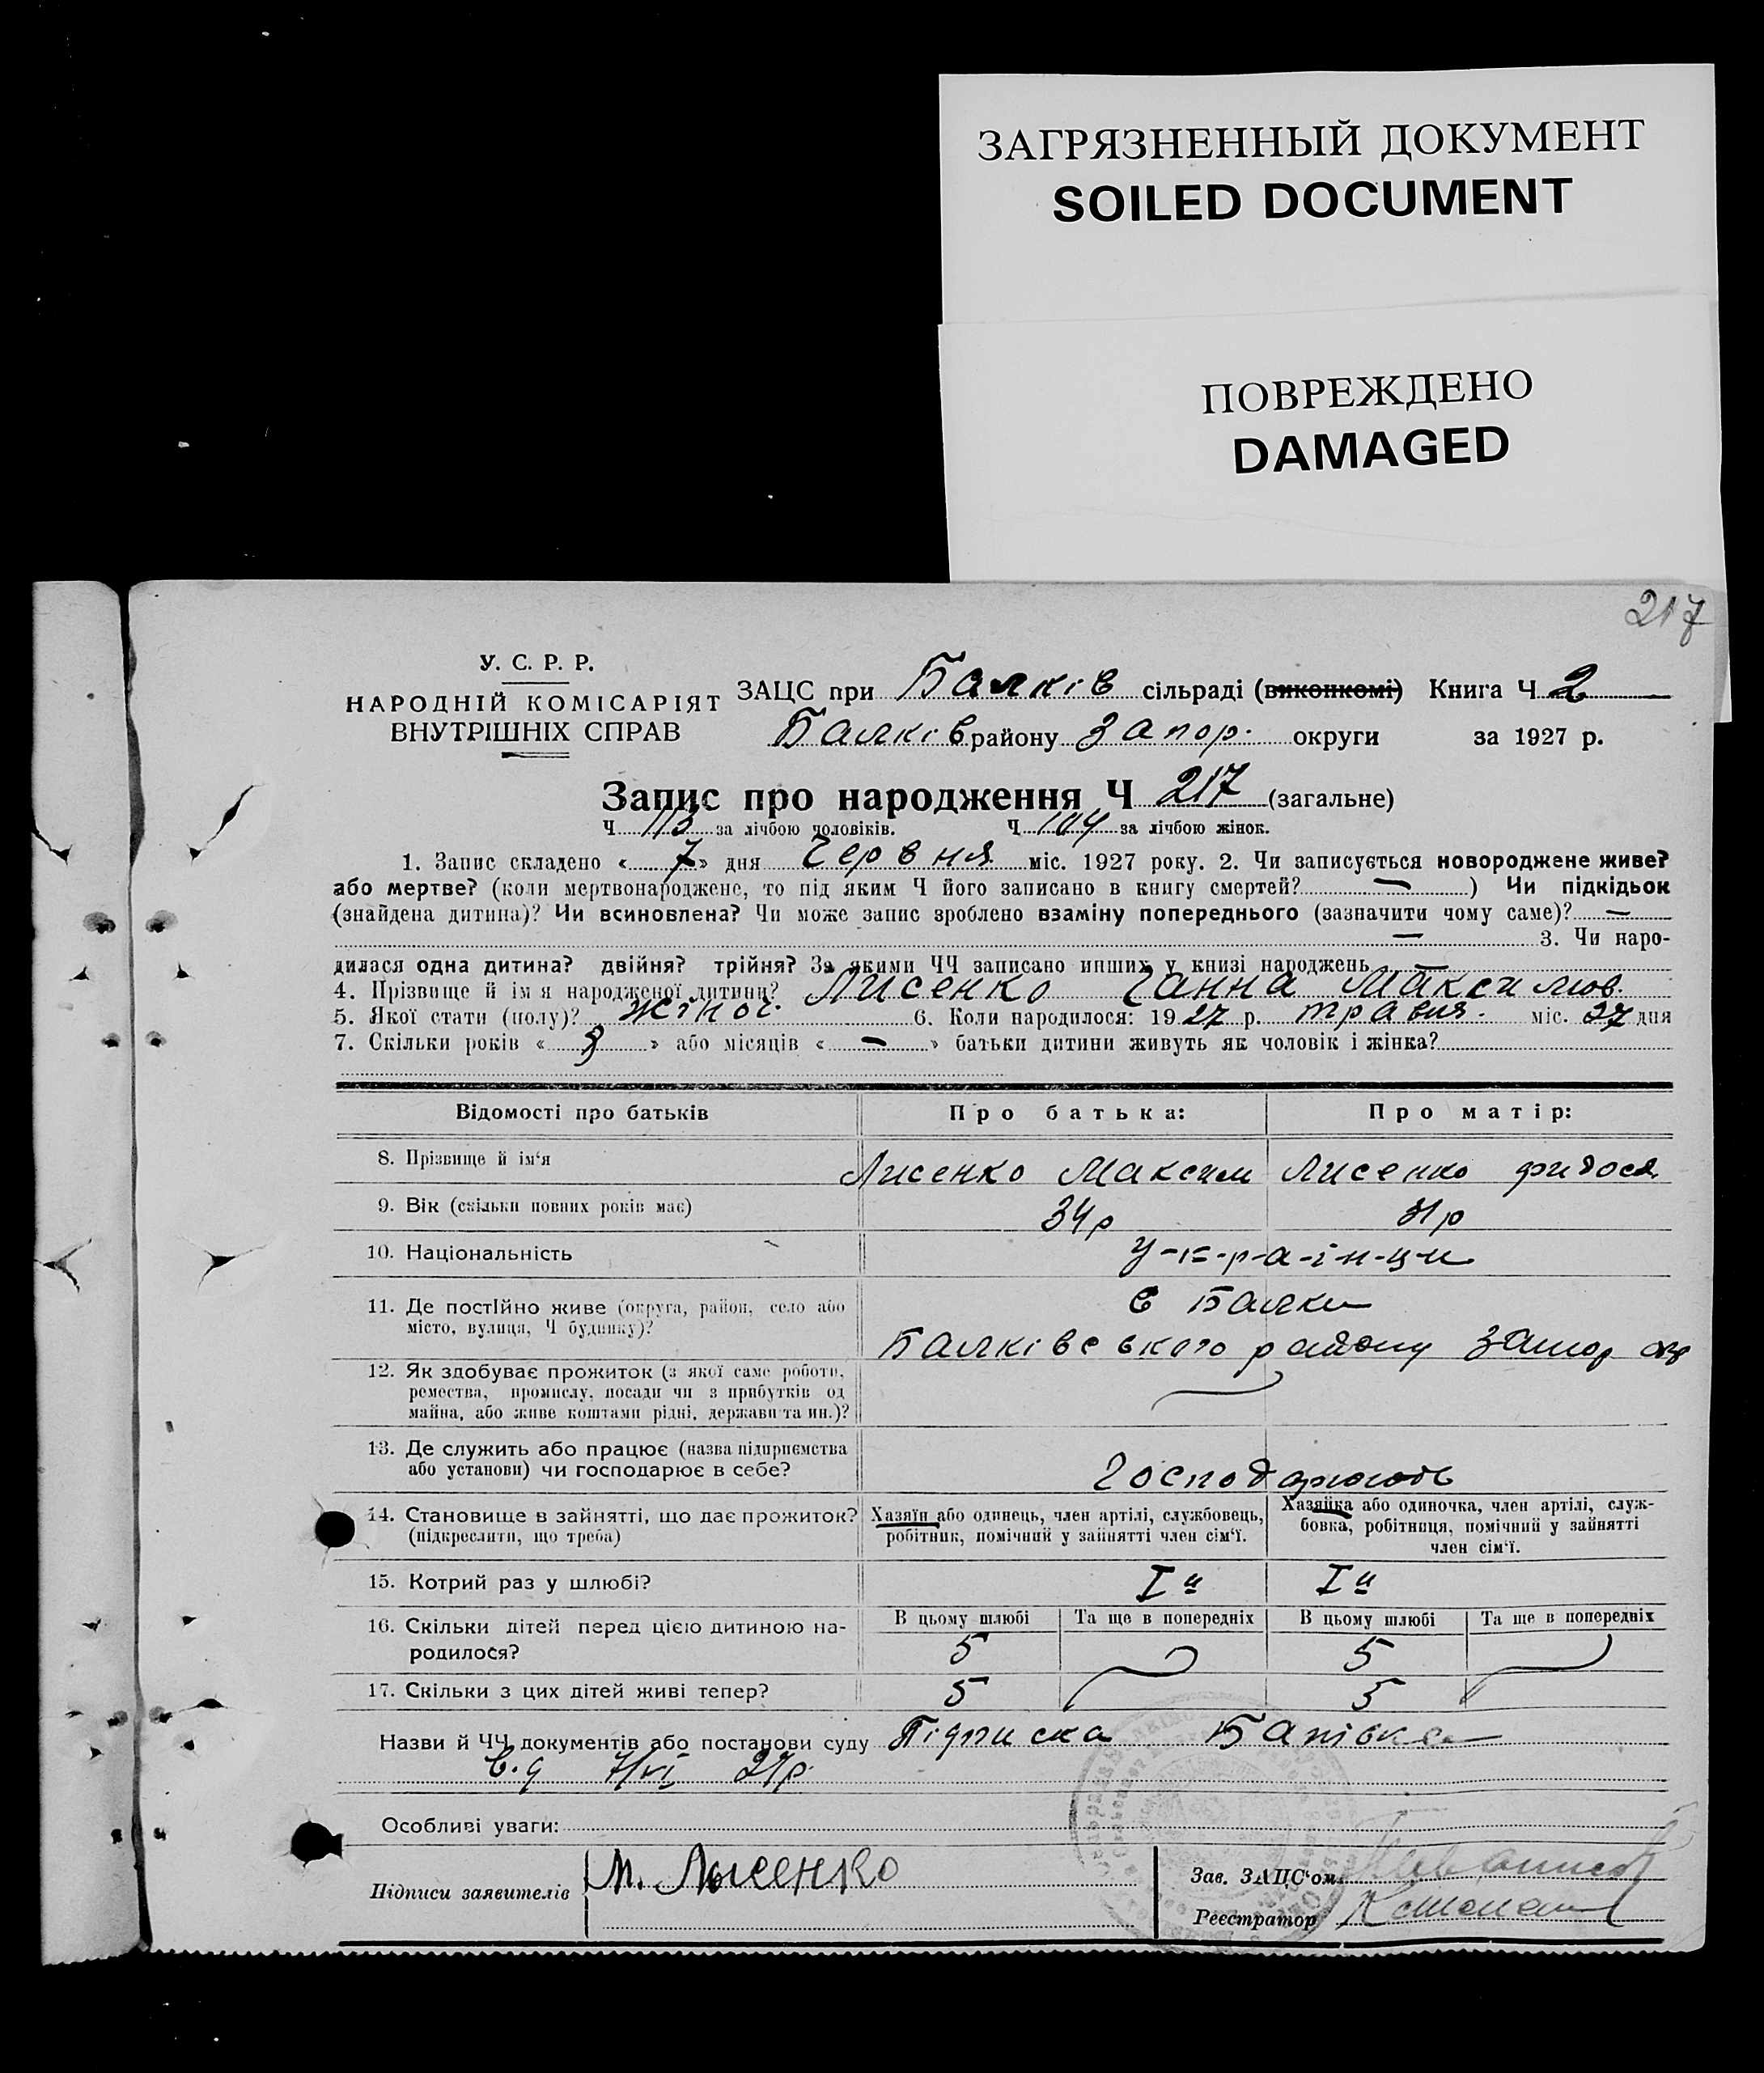 ЗАГРЯЗНЕННЫЙ ДОКУМЕНТ
SOILED DOCUMENT
ПОВРЕЖДЕНО
DAMAGED
217
У. С. Р. Р.
НАРОДНІЙ КОМІСАРІЯТ
ВНУТРІШНІХ СПРАВ
ЗАЦС при Балків сільраді (виконкомі) Книга Ч 2
Балків району Запор. округи за 1927 р.
Запис про народження Ч 217 (загальне)
Ч 113 за лічбою чоловіків. Ч 104 за лічбою жінок.
1. Запис складено « 7 » дня Червня міс. 1927 року. 2. Чи записується новороджене живе?
або мертве? (коли мертвонароджене, то під яким Ч його записано в книгу смертей? — ) Чи підкідьок
(знайдена дитина)? Чи всиновлена? Чи може запис зроблено взаміну попереднього (зазначити чому саме)? —
— 3. Чи наро-
дилася одна дитина? двійня? трійня? За якими ЧЧ записано инших у книзі народжень —
4. Прізвище й ім'я народженої дитини? Лисенко Ганна Максимов.
5. Якої стати (полу)? жіноч. 6. Коли народилося: 1927 р. травня. міс. 27 дня
7. Скільки років « » або місяців « — » батьки дитини живуть як чоловік і жінка?
Відомості про батьків Про батька: Про матір:
8. Прізвище й ім'я Лисенко Максим Лисенко Фидося
9. Вік (скільки повних років має) 34 р 31 р
10. Національність у-к-р-а-і-н-ц-и
11. Де постійно живе (округа, район, село або
місто, вулиця, Ч будинку)?
с Балки
Балківського району Запор окр
12. Як здобуває прожиток (з якої саме роботи,
ремества, промислу, посади чи з прибутків од
майна, або живе коштами рідні, держави та ин.)?
13. Де служить або працює (назва підприємства
або установи) чи господарює в себе?
Господарюють
14. Становище в зайнятті, що дає прожиток?
(підкреслити, що треба)
Хазяїн або одинець, член артілі, службовець,
робітник, помічний у зайнятті член сім'ї.
Хазяйка або одиночка, член артілі, служ-
бовка, робітниця, помічний у зайнятті
член сім'ї.
15. Котрий раз у шлюбі? I й I й
16. Скільки дітей перед цією дитиною на-
родилося?
В цьому шлюбі Та ще в попередніх В цьому шлюбі Та ще в попередніх
5 5
17. Скільки з цих дітей живі тепер? 5 5
Назви й ЧЧ документів або постанови суду Підписка Батівка
7/VI 27р.
Особливі уваги:
Підписи заявителів М. Лысенко
Зав. ЗАЦС'ом
Реєстратор